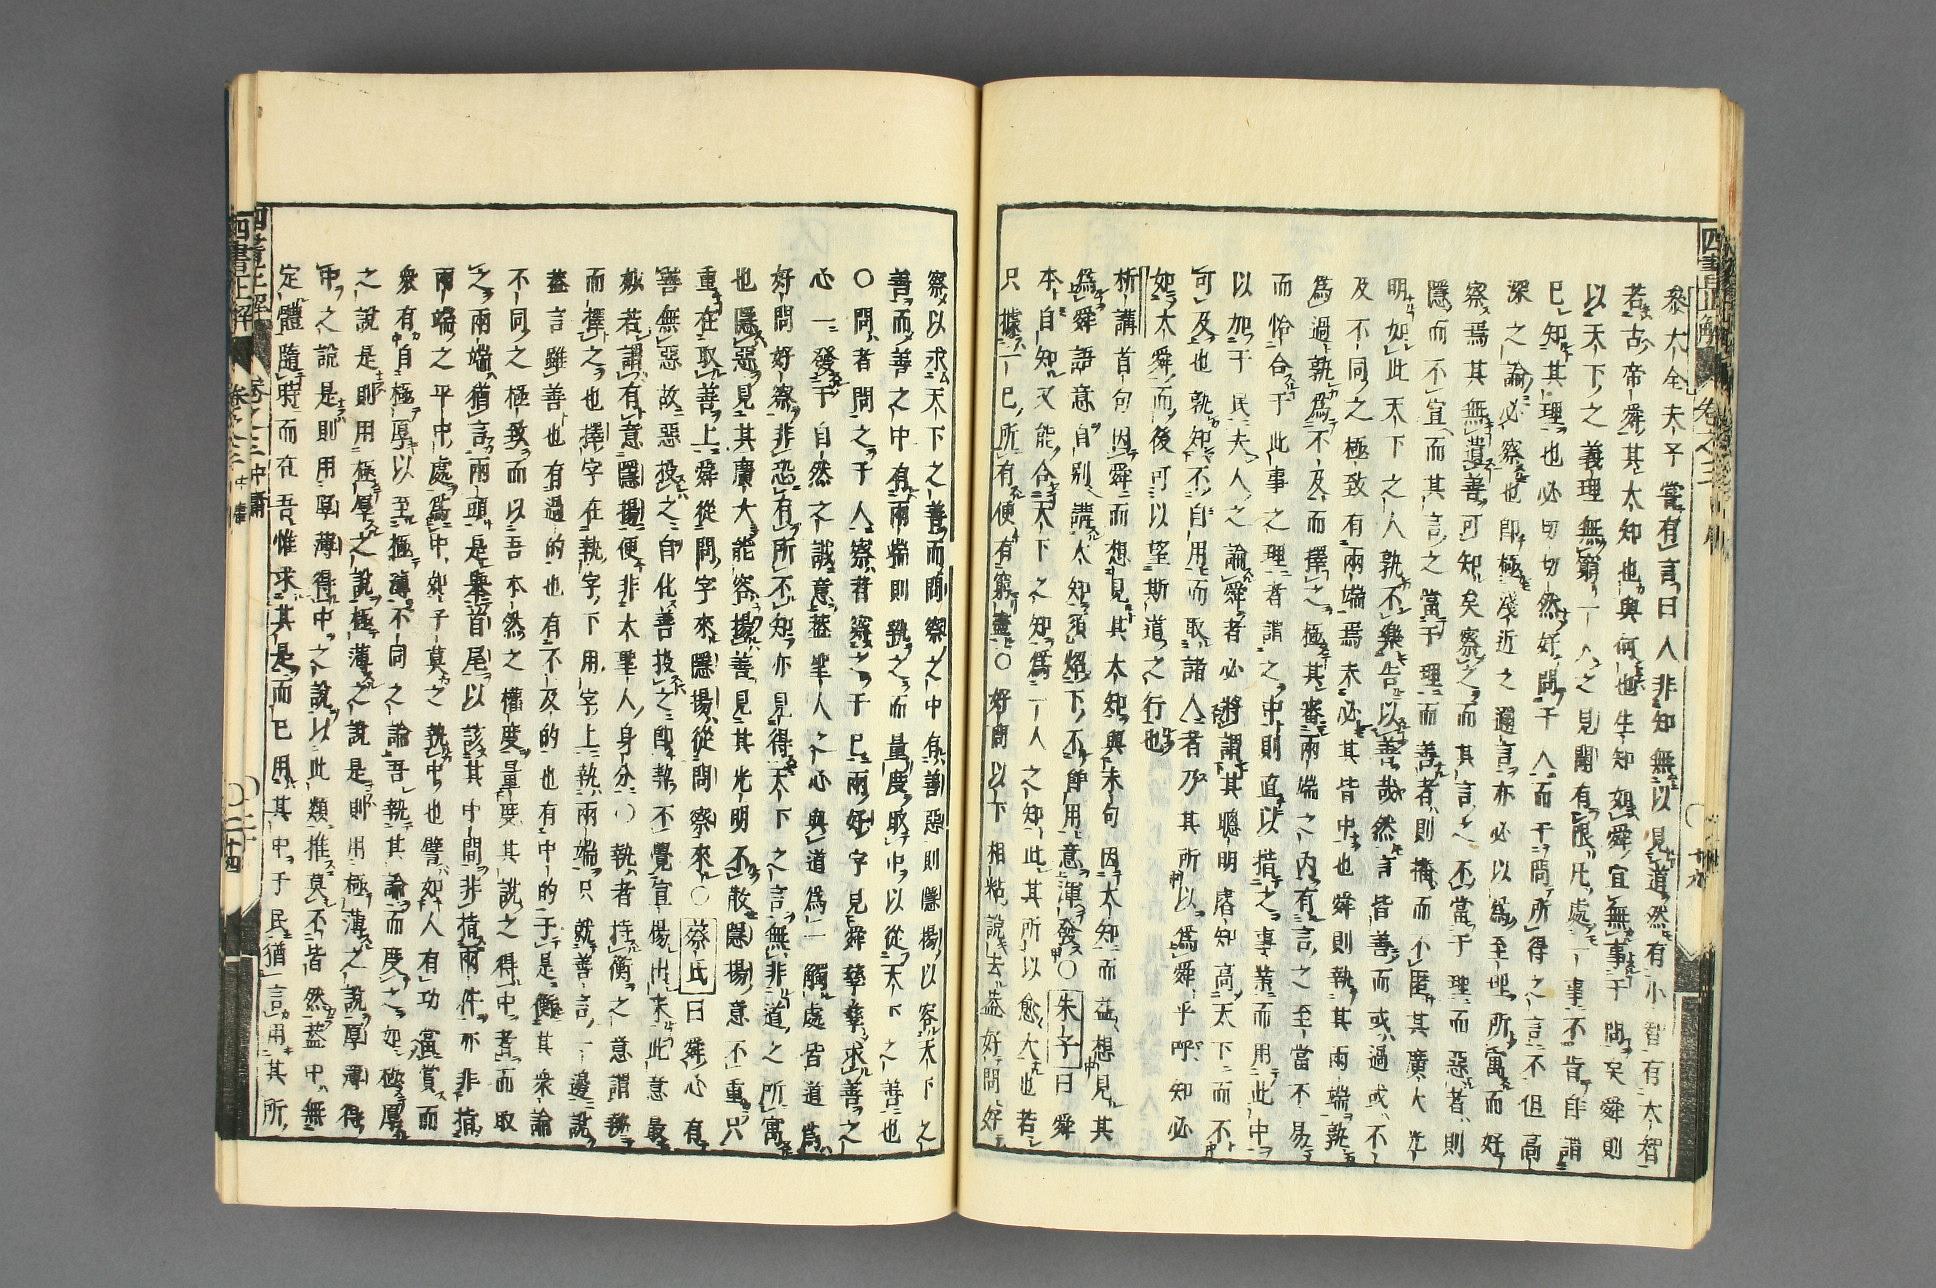 四書正解 卷之三 中庸
參大全夫子嘗有言曰人非知無以見道然有小智有大智
若古帝舜其大知也與何也生知如舜宜無事于問矣舜則
以天下之義理無窮一人之見聞有限凡處一事不肯自謂
已知其理也必切切然好問于人而于問所得之言不但高
深之論必察也即極淺近之邇言亦必以為至理所寓而好
察焉其無遺善可知矣察之而其言之不當于理而惡者則
隱而不宣而其言之當于理而善者則播而不匿其廣大光
明如此天下之人孰不樂告以善哉然言皆善而或過或不
及不同之極致有兩端焉未必其皆中也舜則執其兩端孰
為過孰為不及而擇之極其審兩端之內有言之至當不易
而恰合于此事之理者謂之中則直以措之事業而用此中
以加于民夫人之論舜者必將謂其聰明睿知高天下而不
可及也孰知不自用而取諸人者乃其所以為舜乎吁知必
如大舜而後可以望斯道之行也
析講首句因舜而想見其大知與末句因大知而益想見其
為舜語意自別講大知須炤下不自用意渾發○朱子曰舜
本自知又能合天下之知為一人之知此其所以愈大也若
只據一己所有便有窮盡○好問以下相粘說去蓋好問好
察以求天下之善而問察之中有善惡則隱揚以容天下之
善而善之中有兩端則執之而量度取中以從天下之善也
○問者問之于人察者察之于己兩好字見舜孳孳求善之
心一發于自然之誠意蓋聖人之心與道為一觸處皆道為
好問好察非恐有所不知亦見得天下之言無非道之所寓
也隱惡見其廣大能容揚善見其光明不蔽隱揚意不重只
重在取善上舜從問字來隱揚從問察來○蔡氏曰舜心有
善無惡故惡投之自化善投之即契不覺宣揚出來此意最
妙若謂有意隱揚便非大聖人身分○執者持衡之意謂執
而擇之也擇字在執字下用字上執兩端只就善言一邊說
蓋言雖善也有過的也有不及的也有中的于是便其衆論
不同之極致而以吾本然之權度量度其說之得中者而取
之兩端猶言兩頭是舉首尾以該其中間非指兩件亦非指
兩端之平中處為中如子莫之執中也譬如人有功當賞而
衆有自極厚以至極薄不同之論吾執其論而度之如極厚
之說是則用極厚之說極薄之說是則用極薄之說厚薄得
中之說是則用厚薄得中之說以此類推莫不皆然蓋中無
定體隨時而在吾惟求其是而已用其中于民猶言用其所
四書正解 卷之三 中庸